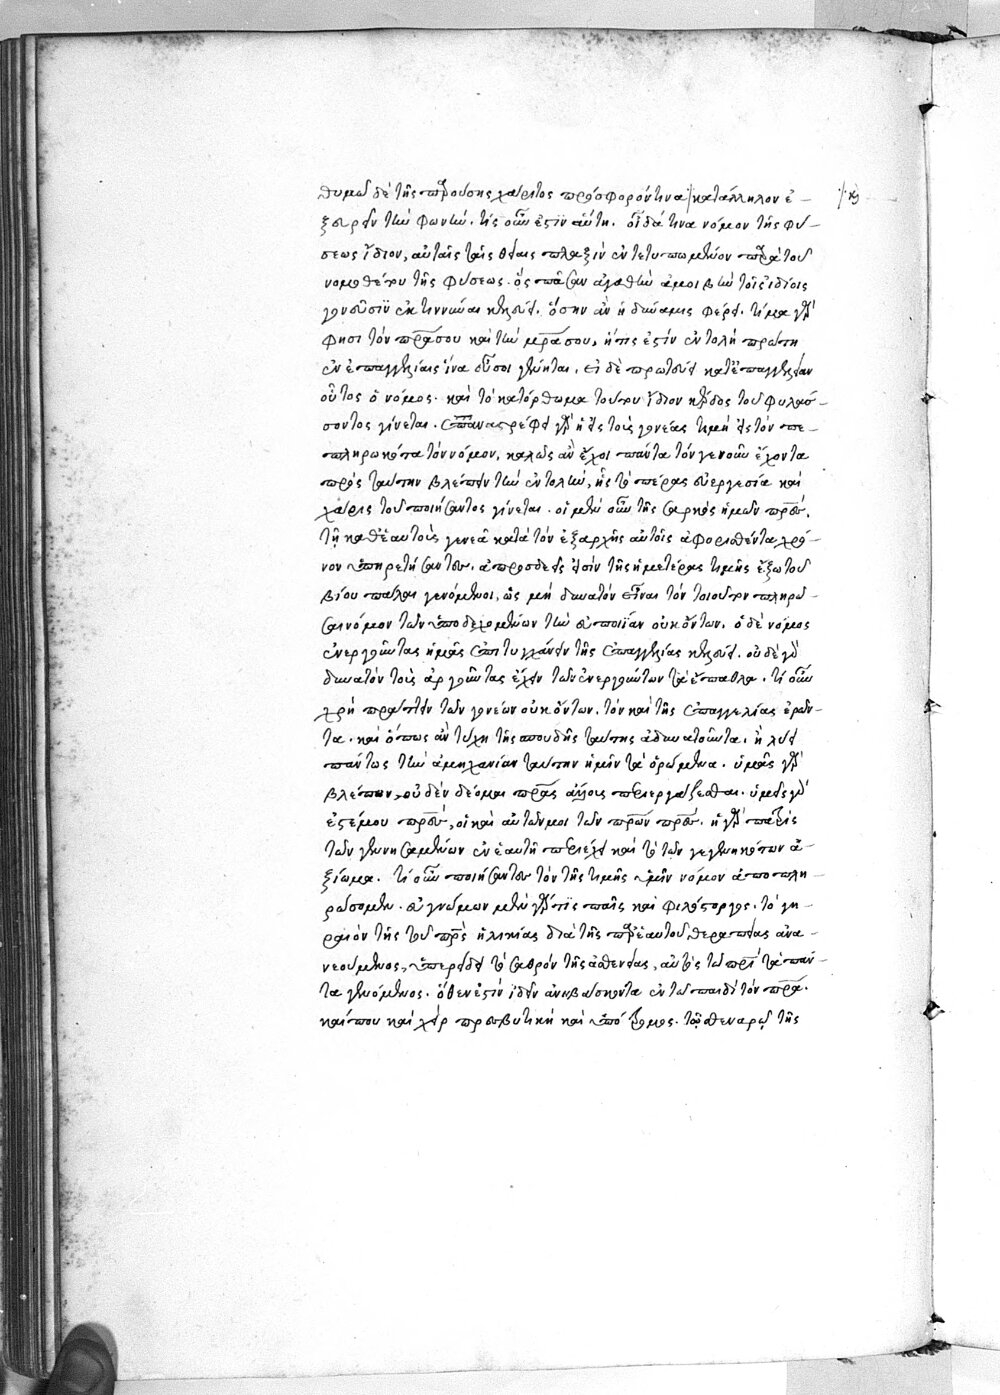 θυμῶ δὲ τῆς παρούσης χάριτος πρόσφορόν τινα καὶ κατάλληλον ἐ-
ξευρεῖν τὴν φωνὴν. τίς οὖν ἐστὶν αὕτη. οἶδά τινα νόμον τῆς φύ-
σεως ἴδιον, αὐταῖς ταῖς θείαις πλαξὶν ἐντετυπωμένον παρὰ τοῦ
νομοθέτου τῆς φύσεως. ὃς πᾶσαν ἀγαθὴν ἀμοιβὴν τοῖς ἰδίοις
γονεῦσιν ἐκτιννύναι κελεύει. ὅσην ἂν ἡ δύναμις φέρει. τίμα γάρ
φησι τὸν πατέρα σου καὶ τὴν μητέρα σου, ἥτις ἐστὶν ἐντολὴ πρώτη
ἐν ἐπαγγελίαις ἵνα εὖ σοι γένηται. εἰ δὲ πρωτεύει κατ' ἐπαγγελίαν
οὗτος ὁ νόμος. καὶ τὸ κατόρθωμα τούτου ἴδιον κέρδος τοῦ φυλάσ-
σοντος γίνεται. ἐπαναστρέφει γὰρ ἡ εἰς τοὺς γονέας τιμὴ εἰς τὸν πε-
πληρωκότα τὸν νόμον, καλῶς ἂν ἔχοι πάντα τὸν γε νοῦν ἔχοντα
πρὸς ταύτην βλέπειν τὴν ἐντολὴν, ἧς τὸ πέρας εὐεργεσία καὶ
χάρις τοῦ ποιήσαντος γίνεται. οἱ μὲν οὖν τῆς σαρκὸς ἡμῶν πατέρες,
τῇ καθ' ἑαυτοὺς γενεᾷ κατὰ τὸν ἐξαρχῆς αὐτοῖς ἀφορισθέντα χρό-
νον ὑπηρετήσαντες. ἀπροσδεεῖς εἰσὶν τῆς ἡμετέρας τιμῆς ἔξω τοῦ
βίου πάλαι γενόμενοι, ὡς μὴ δυνατὸν εἶναι τὸν τοιοῦτον πληρῶ-
σαι νόμον τῶν ὑποδεχομένων τὴν εὐποιΐαν οὐκ ὄντων. ὁ δὲ νόμος
ἐνεργοῦντας ἡμᾶς ἐπιτυγχάνειν τῆς ἐπαγγελίας κελεύει. οὐδὲ γὰρ
δυνατὸν τοὺς ἀργοῦντας ἔχειν τῶν ἐνεργούντων τὰ ἔπαθλα. τί οὖν
χρὴ πράττειν τῶν γονέων οὐκ ὄντων. τὸν καὶ τῆς ἐπαγγελίας ἐρῶν-
τα. καὶ ὅπως ἂν τύχῃ τῆς σπουδῆς ταύτης ἀδυνατοῦντα. ἢ λύει
πάντως τὴν ἀμηχανίαν ταύτην ἡμῖν τὰ ὁρώμενα. ὑμᾶς γὰρ
βλέπων, οὐδὲν δέομαι πατέρας ἄλλους περιεργάζεσθαι. ὑμεῖς γὰρ
ἐστέ μου πατέρες, οἱ καὶ αὐτῶν μοι τῶν πατέρων πατέρες. ἡ γὰρ πατρὶς
τῶν γεννησαμένων ἐν ἑαυτῇ περιέχει καὶ τὸ τῶν γεγεννηκότων ἀ-
ξίωμα. τί οὖν ποιήσαντες τὸν τῆς τιμῆς ὑμῖν νόμον ἀποπλη-
ρώσομεν. εὐγνώμων μὲν γάρ τις παῖς καὶ φιλόστοργος. τὸ γη-
ραιὸν τῆς τοῦ πατρὸς ἡλικίας διὰ τῆς παρ' ἑαυτοῦ θεραπείας ἀνα-
νεούμενος, ὑπερείδει τὸ σαθρὸν τῆς ἀσθενείας, αὐτὸς τῷ πατρὶ τὰ πάν-
τα γενόμενος. ὅθεν ἐστὶν ἰδεῖν ἀνηβάσκοντα ἐν τῷ παιδὶ τὸν πατέρα.
καί που καὶ χεὶρ πρεσβυτικὴ καὶ ὑπότρομος. τῷ σθεναρῷ τῆς